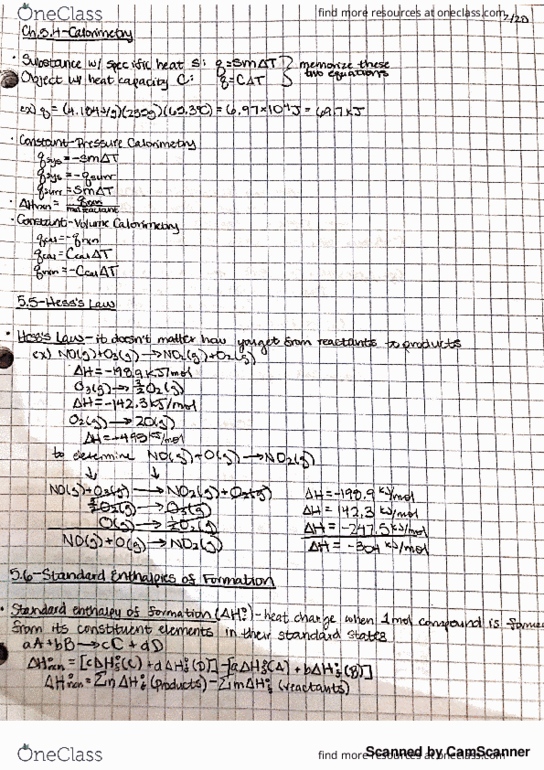 OneClass
find more resources at oneclass.com
Ch.5.4-Calorimetry
• Substance w/ specific heat s: q=smΔT } memorize these
Object w/ heat capacity C: q=CΔT } two equations
ex) q= (4.184J/g)(255g)(65.3°C)=6.97×10⁴J=69.7kJ
• Constant-Pressure Calorimetry
qsys=-smΔT
qsys=-qsurr
qsurr=smΔT
• ΔHrxn=
• Constant-Volume Calorimetry
qcal=-qrxn
qcal=CcalΔT
qrxn=-CcalΔT
5.5-Hess's Law
• Hess's Law-it doesn't matter how you get from reactants to products
ex) NO(g)+O₃(g)→NO₂(g)+O₂(g)
ΔH=-198.9kJ/mol
O₃(g)→3/2O₂(g)
ΔH=-142.3kJ/mol
O₂(g)→2O(g)
kJ/mol
to determine NO(g)+O(g)→NO₂(g)
↓ ↓
NO(g)+O₃(g)→NO₂(g)+O₂(g) ΔH=-198.9 kJ/mol
3/2O₂(g)→O₃(g) ΔH= 142.3 kJ/mol
O(g)→1/2O₂(g) ΔH=-247.5kJ/mol
NO(g)+O(g)→NO₂(g) ΔH=-304 kJ/mol
5.6-Standard Enthalpies of Formation
• Standard enthalpy of formation (ΔH°f)-heat change when 1mol compound is
from its constituent elements in their standard states
aA+bB→cC+dD
ΔH°rxn=[cΔH°f(C)+dΔH°f(D)]-[aΔH°f(A)+bΔH°f(B)]
ΔH°rxn=ΣnΔH°f(products)-ΣmΔH°f(reactants)
OneClass
find more resources at oneclass.com
Scanned by CamScanner